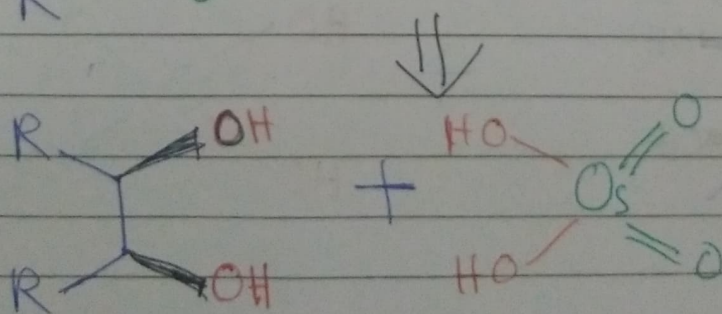 R
O
R OH + HO
Os
R OH HO O